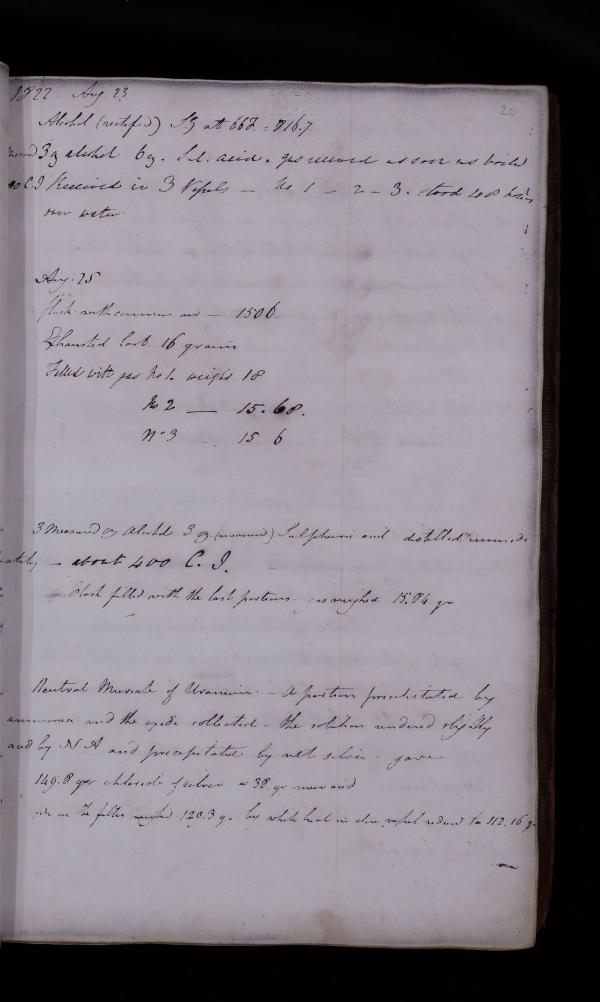 1822. Aug. 23
20
Alcohol (rectified) S.G at 66F = 816.7
3 oz alcohol 6 oz. S.l. acid. gas received as soon as boiled
C.I Received in 3 Vessels — No 1 — 2 — 3. stood 48 hours
over water
Aug. 25
Flask with common air — 1506
Exhausted lost 16 grains
Filled with gas No 1. weighs 18
No 2 — 15.68.
No 3 — 15.6
3 Measured oz Alcohol 3 oz (measured) Sulphuric acid distilled immedi
ately — about 400 C. I.
Flask filled with the last portions gas weighed 15.84 gr
Neutral Muriate of Uranium. — A portion precipitated by
ammonia and the oxide collected — the solution rendered slightly
acid by N A and precipitated by nit silver. gave
149.8 grs chloride of silver = 38. gr mur acid
on the filter weighed 120.3 g. by white heat in close vessel reduced to 112.16 gr